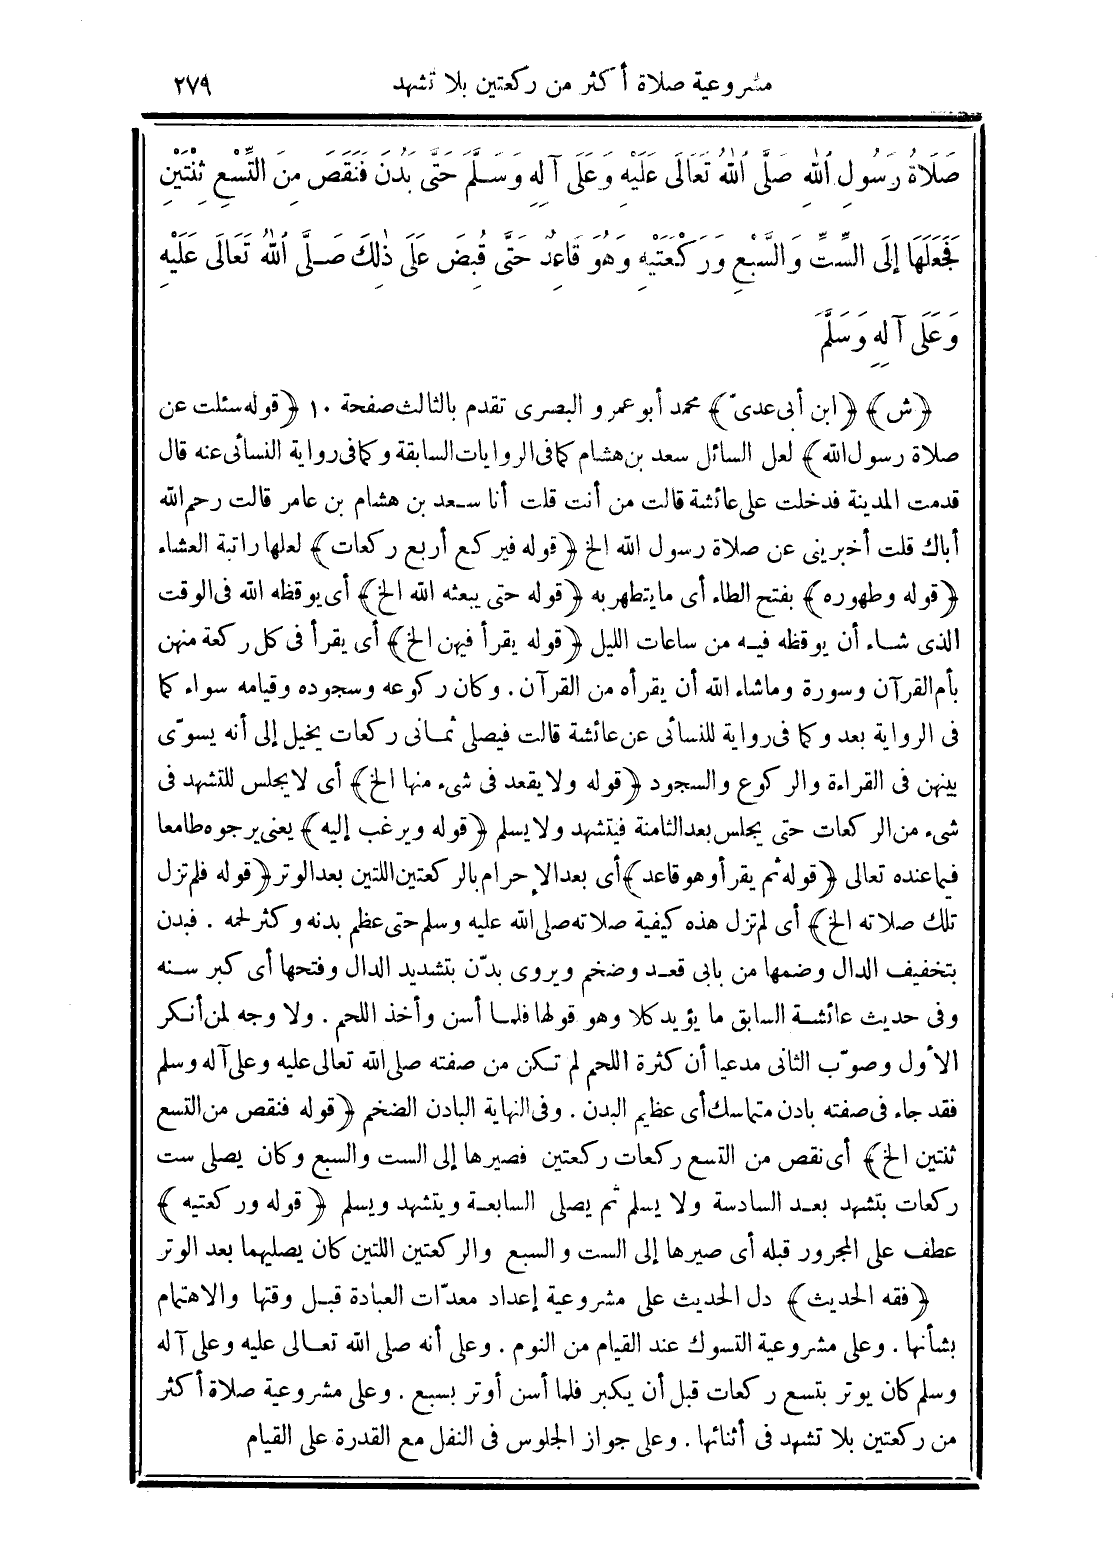 مشروعية صلاة أكثر من ركعتين بلا تشهد ٢٧٩
صَلَاةُ رَسُولِ اللهِ صَلَّى اللهُ تَعَالَى عَلَيْهِ وَعَلَى آلِهِ وَسَلَّمَ حَتَّى بَدُنَ فَنَقَصَ مِنَ التِّسْعِ ثِنْتَيْنِ
فَجَعَلَهَا إِلَى السِّتِّ وَالسَّبْعِ وَرَكْعَتَيْهِ وَهُوَ قَاعِدٌ حَتَّى قُبِضَ عَلَى ذٰلِكَ صَلَّى اللهُ تَعَالَى عَلَيْهِ
وَعَلَى آلِهِ وَسَلَّمَ
﴿ش﴾ ﴿ابن أبى عدىّ﴾ محمد أبو عمرو البصرى تقدم بالثالث صفحة ١٠ ﴿قوله سئلت عن
صلاة رسول الله﴾ لعل السائل سعد بن هشام كما فى الروايات السابقة وكما فى رواية النسائى عنه قال
قدمت المدينة فدخلت على عائشة قالت من أنت قلت أنا سعد بن هشام بن عامر قالت رحم الله
أباك قلت أخبرينى عن صلاة رسول الله الخ ﴿قوله فيركع أربع ركعات﴾ لعلها راتبة العشاء
﴿قوله وطهوره﴾ بفتح الطاء أى ما يتطهر به ﴿قوله حتى يبعثه الله الخ﴾ أى يوقظه الله فى الوقت
الذى شاء أن يوقظه فيه من ساعات الليل ﴿قوله يقرأ فيهن الخ﴾ أى يقرأ فى كل ركعة منهن
بأم القرآن وسورة وماشاء الله أن يقرأه من القرآن . وكان ركوعه وسجوده وقيامه سواء كما
فى الرواية بعد وكما فى رواية للنسائى عن عائشة قالت فيصلى ثمانى ركعات يخيل إلى أنه يسوّى
بينهن فى القراءة والركوع والسجود ﴿قوله ولا يقعد فى شىء منها الخ﴾ أى لا يجلس للتشهد فى
شىء من الركعات حتى يجلس بعد الثامنة فيتشهد ولا يسلم ﴿قوله ويرغب إليه﴾ يعنى يرجوه طامعا
فيما عنده تعالى ﴿قوله ثم يقرأ وهو قاعد﴾ أى بعد الإحرام بالركعتين اللتين بعد الوتر ﴿قوله فلم تزل
تلك صلاته الخ﴾ أى لم تزل هذه كيفية صلاته صلى الله عليه وسلم حتى عظم بدنه وكثر لحمه . فبدن
بتخفيف الدال وضمها من بابى قعد وضخم ويروى بدّن بتشديد الدال وفتحها أى كبر سنه
وفى حديث عائشة السابق ما يؤيد كلا وهو قولها فلما أسن وأخذ اللحم . ولا وجه لمن أنكر
الأول وصوّب الثانى مدعيا أن كثرة اللحم لم تكن من صفته صلى الله تعالى عليه وعلى آله وسلم
فقد جاء فى صفته بادن متماسك أى عظيم البدن . وفى النهاية البادن الضخم ﴿قوله فنقص من التسع
ثنتين الخ﴾ أى نقص من التسع ركعات ركعتين فصيرها إلى الست والسبع وكان يصلى ست
ركعات بتشهد بعد السادسة ولا يسلم ثم يصلى السابعة ويتشهد ويسلم ﴿قوله وركعتيه﴾
عطف على المجرور قبله أى صيرها إلى الست والسبع والركعتين اللتين كان يصليهما بعد الوتر
﴿فقه الحديث﴾ دل الحديث على مشروعية إعداد معدّات العبادة قبل وقتها والاهتمام
بشأنها . وعلى مشروعية التسوك عند القيام من النوم . وعلى أنه صلى الله تعالى عليه وعلى آله
وسلم كان يوتر بتسع ركعات قبل أن يكبر فلما أسن أوتر بسبع . وعلى مشروعية صلاة أكثر
من ركعتين بلا تشهد فى أثنائها . وعلى جواز الجلوس فى النفل مع القدرة على القيام